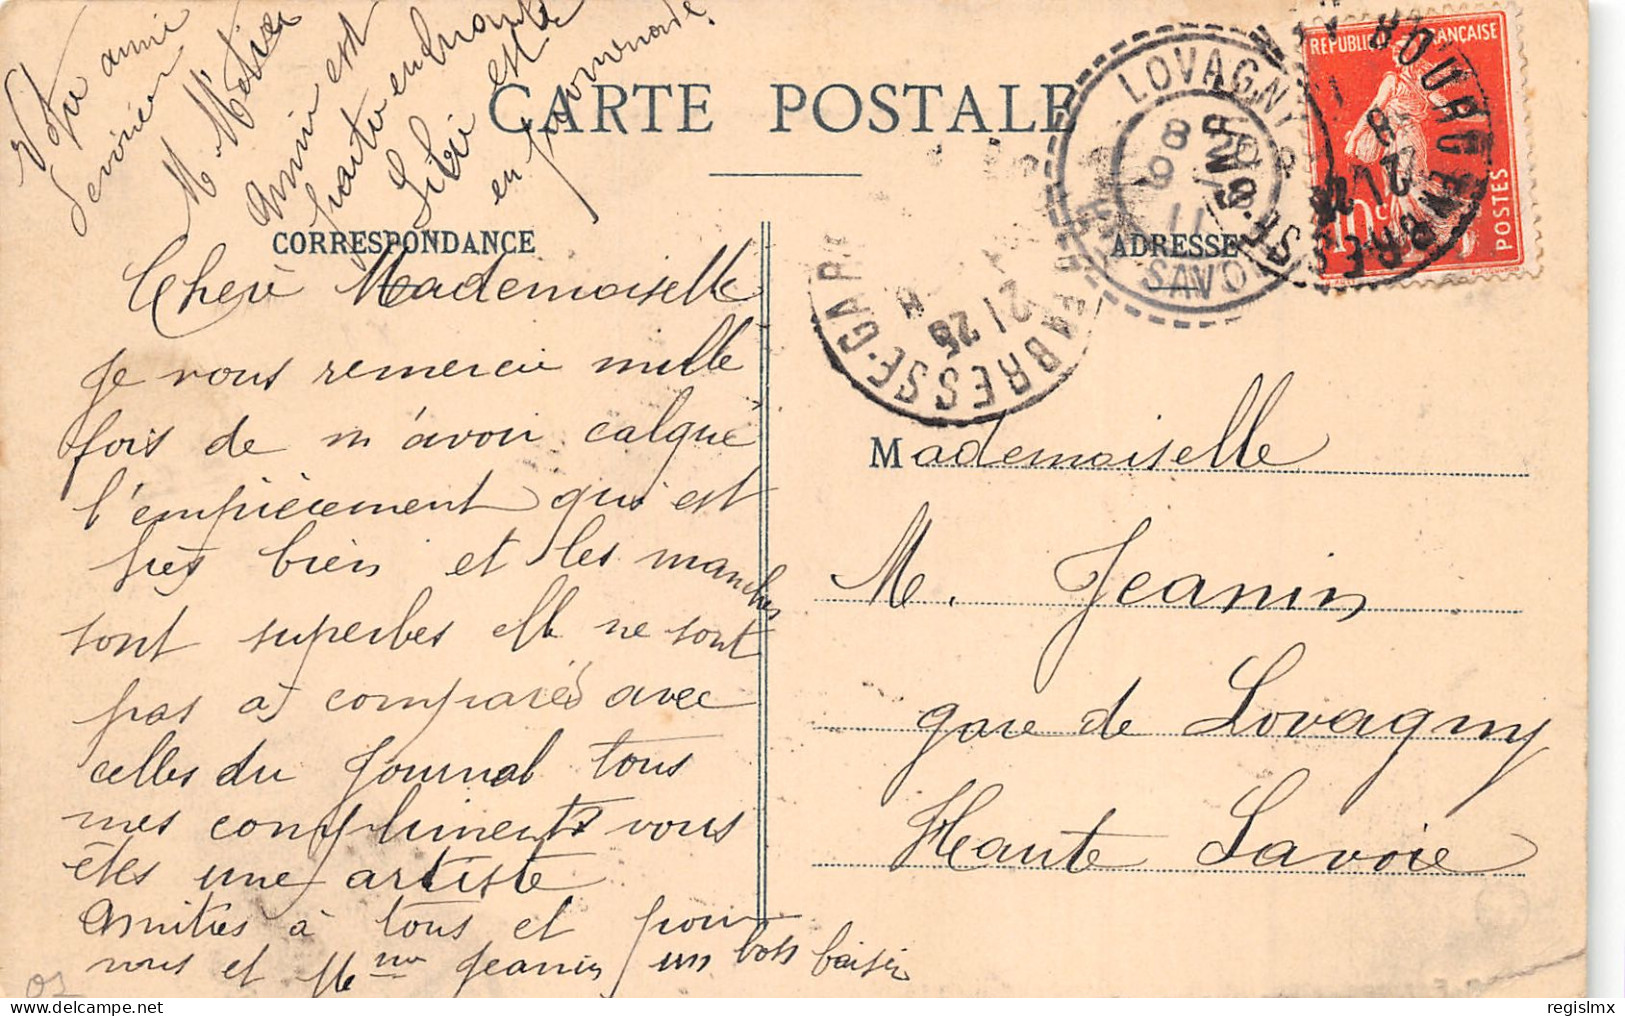 CARTE POSTALE
CORRESPONDANCE
ADRESSE
Votre amie
M. Métier
est
en
est
en promenade.
Cheré Mademoiselle
Je vous remercie mille
fois de m'avoir calqué
l'empiècement qui est
très bien et les manches
sont superbes elle ne sont
pas à comparés avec
celles du Journal tous
mes compliments vous
êtes une artiste
Amitiés à tous et pour
vous et Mme Jeanin un bons baiser
Mademoiselle
M. Jeanin
gare de Lovagny
Haute Savoie
LOVAGNY
8
8
11
SAVOIE
BRESSE-GARE
21 25
BOURG EN BRESSE
REPUBLIQUE FRANÇAISE
10c
POSTES
01
regislmx